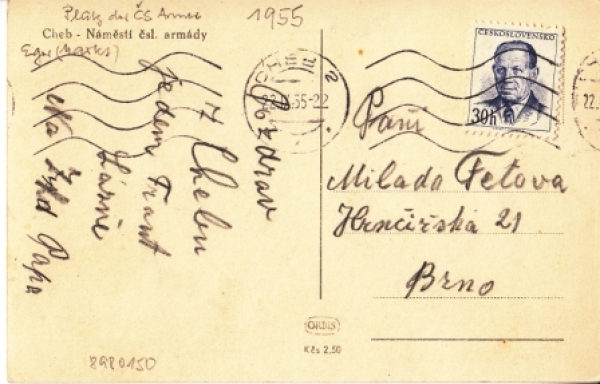 Platz der ČS Armee
1955
Cheb - Náměstí čsl. armády
Eger (Markt)
ČESKOSLOVENSKO
30h
CHEB
2
22.IX.55-22
22.
Pozdrav
z Chebu
jedem Frant
Lázně
Papa
Paní
Milada Feťova
Hrnčířská 21
Brno
ORBIS
Kčs 2,50
8980150